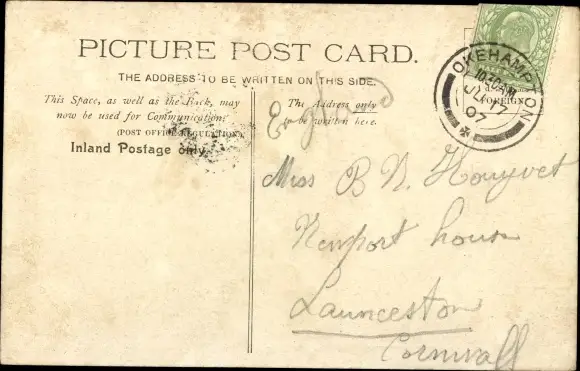 PICTURE POST CARD.
THE ADDRESS TO BE WRITTEN ON THIS SIDE.
This Space, as well as the Back, may
now be used for Communications
(POST OFFICE REGULATION).
Inland Postage only
The Address only
to be written here.
England
OKEHAMPTON
10.30AM
JY 17
07
FOREIGN
Miss B N.
Newport house
Launceston
Cornwall